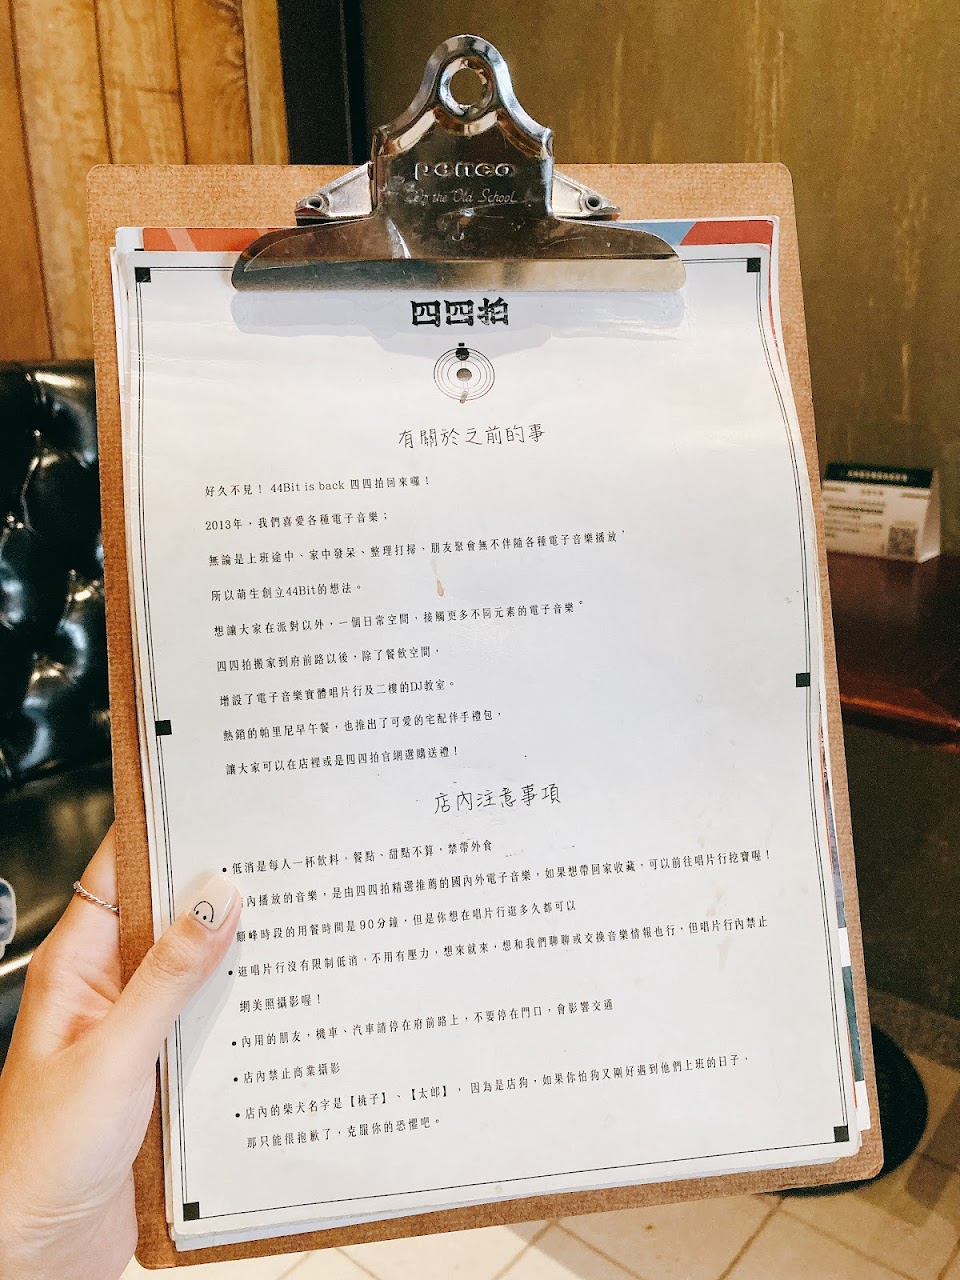 penco
Old School
四四拍
有關於之前的事
好久不見！ 44Bit is back 四四拍回來囉！
2013年，我們喜愛各種電子音樂；
無論是上班途中、家中發呆、整理打掃、朋友聚會無不伴隨各種電子音樂播放，
所以萌生創立44Bit的想法。
想讓大家在派對以外，一個日常空間，接觸更多不同元素的電子音樂。
四四拍搬家到府前路以後，除了餐飲空間，
增設了電子音樂實體唱片行及二樓的DJ教室。
熱銷的帕里尼早午餐，也推出了可愛的宅配伴手禮包，
讓大家可以在店裡或是四四拍官網選購送禮！
店內注意事項
• 低消是每人一杯飲料，餐點、甜點不算，禁帶外食
內播放的音樂，是由四四拍精選推薦的國內外電子音樂，如果想帶回家收藏，可以前往唱片行挖寶喔！
顛峰時段的用餐時間是90分鐘，但是你想在唱片行逛多久都可以
• 逛唱片行沒有限制低消，不用有壓力，想來就來，想和我們聊聊或交換音樂情報也行，但唱片行內禁止
網美照攝影喔！
• 內用的朋友，機車、汽車請停在府前路上，不要停在門口，會影響交通
• 店內禁止商業攝影
• 店內的柴犬名字是【桃子】、【太郎】， 因為是店狗，如果你怕狗又剛好遇到他們上班的日子，
那只能很抱歉了，克服你的恐懼吧。